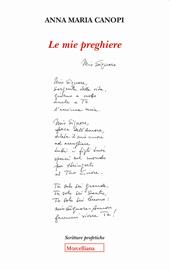 ANNA MARIA CANOPI
Le mie preghiere
Mio Signore
Mio Signore,
sorgente della vita,
guidami a
anche a Te
l'anima mia.
Mio Signore,
dell'Amore,
dilata il mio cuore
ad accogliere
tutti i figli tuoi
sparsi nel mondo
per stringerli
al Tuo Cuore.
Tu solo sei grande,
Tu solo sei Santo,
Tu solo sei buono:
mio Signore-Amore,
fammi vivere Te!
Scritture profetiche
Morcelliana